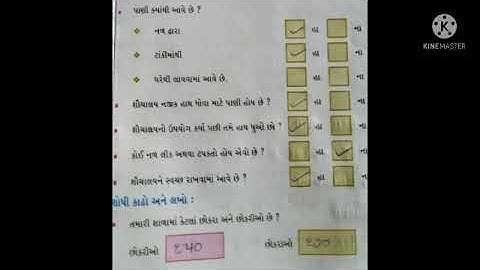 પાણી ક્યાંથી આવે છે ?
નળ દ્વારા હા ના
ટાંકીમાંથી હા ના
ઘરેથી લાવવામાં આવે છે. હા ના
શૌચાલય નજીક હાથ ધોવા માટે પાણી હોય છે ? હા ના
શૌચાલયનો ઉપયોગ કર્યા પછી તમે હાથ ધુઓ છો ? હા ના
કોઈ નળ લીક અથવા ટપકતો હોય એવો છે ? હા ના
શૌચાલયને સ્વચ્છ રાખવામાં આવે છે ? હા ના
શોધી કાઢો અને લખો :
તમારી શાળામાં કેટલાં છોકરા અને છોકરીઓ છે ?
છોકરીઓ ૬૫૦ છોકરાઓ ૬૩૦
KINEMASTER